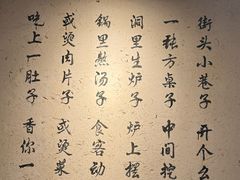 街头小巷子 开个么
一张方桌子 中间挖
洞里生炉子 炉上摆
锅里熬汤子 食客动
或烫肉片子 或烫菜
吃上一肚子 香你一